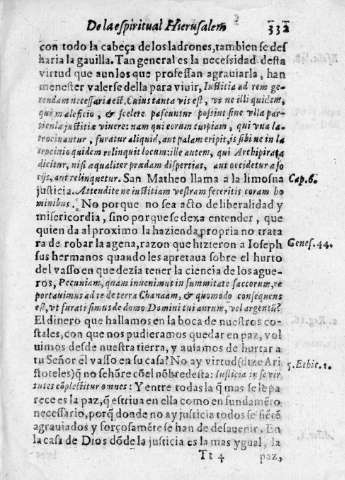 De la espiritual Hierusalem 332
con todo la cabeça de los ladrones, tambien se des
haria la gauilla. Tan general es la necessidad desta
virtud que aun los que professan agrauiarla, han
menester valerse della para viuir, Iustitia ad rem ge-
rendam necessaria est. Cuius tanta vis est, vt ne illi quidem,
qui maleficio, & scelere pascuntur possint sine vlla par-
ticula iustitiæ viuere: nam qui eorum cuipiam, qui vna la-
trocinantur, furatur aliquid, aut palam eripit, is sibi ne in la
trocinio quidem relinquit locum: ille autem, qui Archipirata
dicitur, nisi æqualiter prædam dispertiat, aut occidetur à so
cijs, aut relinquetur. San Matheo llama à la limosna Cap.6.
justicia. Attendite ne iustitiam vestram feceritis coram ho
minibus. No porque no sea acto de liberalidad y
misericordia, sino porque se dexa entender, que
quien da al proximo la hazienda propria no trata
ra de robar la agena, razon que hizieron a Ioseph Genes.44.
sus hermanos quando les apretaua sobre el hurto
del vasso en que dezia tener la ciencia de los ague-
ros, Pecuniam, quam inuenimus in summitate saccorum, re
portauimus ad te de terra Chanaam, & quomodo consequens
est, vt furati simus de domo Domini tui aurum, vel argentū?
El dinero que hallamos en la boca de nuestros co-
stales, con que nos pudieramos quedar en paz, vol
uimos desde nuestra tierra, y auiamos de hurtar a
tu Señor el vasso en su casa? No ay virtud (dize Ari
stoteles) q̃ no se hõre cõ el nõbre desta: Iustitia in se vir. 5.Ethic.1.
tutes cõplectitur omnes: Y entre todas la q̃ mas se le pa
rece es la paz, q̃ estriua en ella como en fundamẽto
necessario, porq̃ donde no ay justicia todos se siẽtẽ
agrauiados y forçosamẽte se han de desauenir. En
la casa de Dios dõde la justicia es la mas ygual, la
Tt 4 paz,